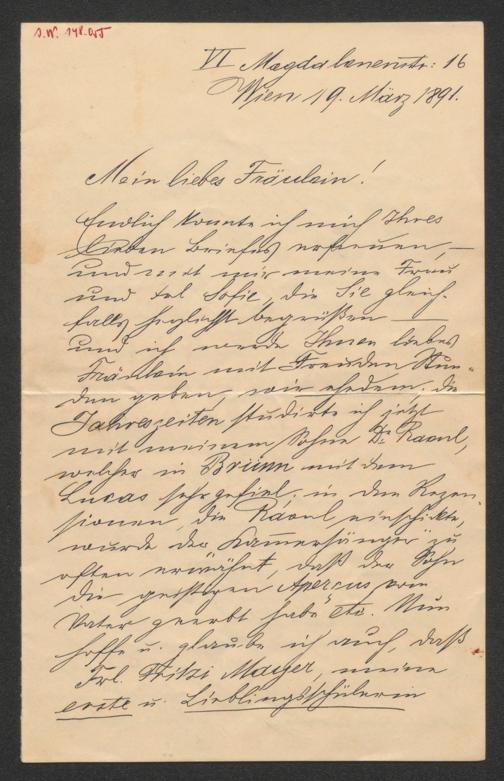 VI Magdalenenstr: 16
Wien 19. März 1891.
Mein liebes Fräulein!
Endlich konnte ich mich Ihres
lieben Briefes erfreuen, —
und mit mir meine Frau
und Sofie, die Sie gleich-
falls herzlichst begrüßen —
und ich werde Ihnen liebes
Fräulein mit Freuden Stun-
den geben, wie ehedem. die
Jahreszeiten studirte ich jetzt
mit meinem Sohne Dr. Raoul,
welcher in Brünn mit dem
Lucas sehr gefiel. in den Rezen-
sionen, die Raoul einschickte,
wurde der Kammersänger zu
oft erwähnt, daß der Sohn
die geistigen Aperçus vom
Vater geerbt habe etc. Nun
hoffe u. glaube ich auch, daß
Frl. Fritzi Mayer, meine
erste u. Lieblingsschülerin